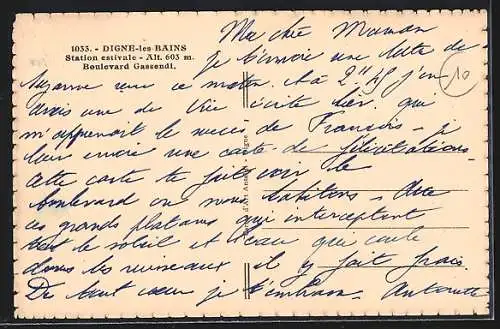 1033. - DIGNE-les-BAINS
Station estivale - Alt. 603 m.
Boulevard Gassendi.
10
Ma chère Maman
Je t'envoie une lettre de
Suzanne reçue ce matin. A 2h 45 j'en
avais une de écrite hier qui
m'apprenait le succès de François - je
leur envoie une carte de félicitations.
Cette carte te fait voir le
boulevard où nous habitons - avec
ces grands platanes qui interceptent
tout le soleil et l'eau qui coule
dans les ruisseaux il y fait frais.
De tout cœur je t'embrasse. Antoinette